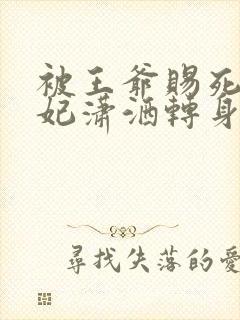 被王爺賜死
妃瀟洒轉身
尋找失落的愛